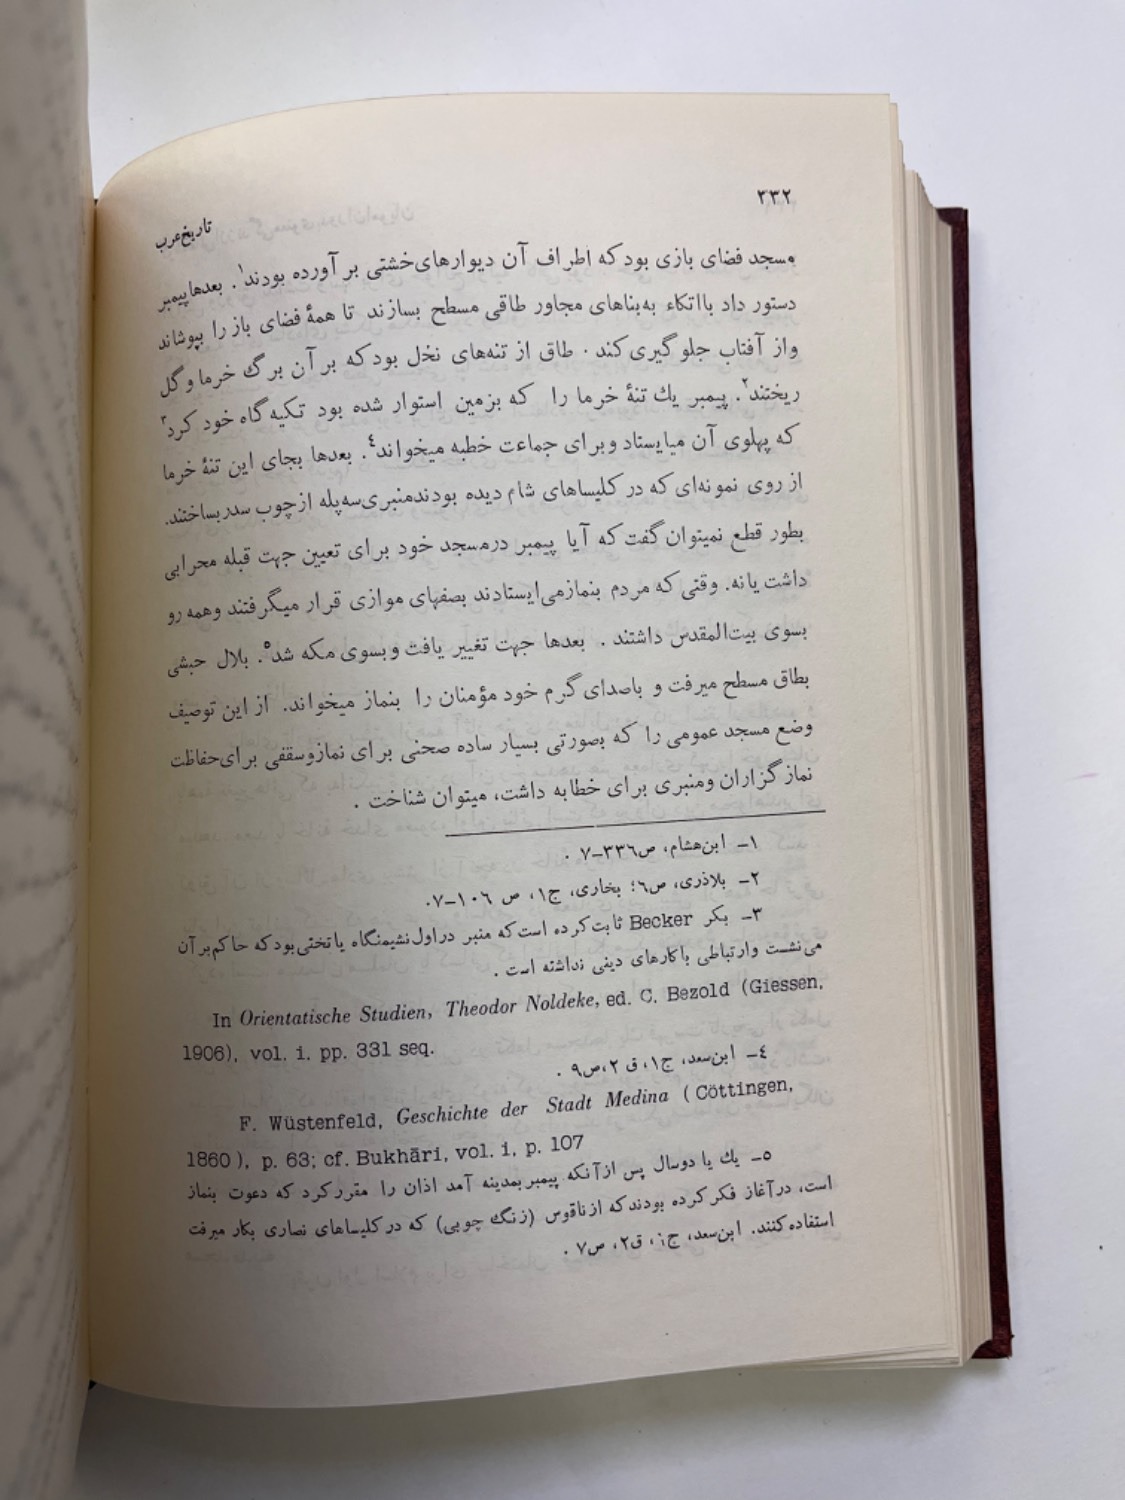 ۳۳۲
تاریخ عرب
مسجد فضای بازی بود که اطراف آن دیوارهای خشتی بر آورده بودند۱. بعدها پیمبر
دستور داد با اتکاء به بناهای مجاور طاقی مسطح بسازند تا همهٔ فضای باز را بپوشاند
و از آفتاب جلو گیری کند. طاق از تنه‌های نخل بود که بر آن برگ خرما و گل
ریختند۲. پیمبر یك تنهٔ خرما را که بزمین استوار شده بود تکیه گاه خود کرد۳
که پهلوی آن میایستاد و برای جماعت خطبه میخواند٤. بعدها بجای این تنهٔ خرما
از روی نمونه‌ای که در کلیساهای شام دیده بودند منبری سه پله از چوب سدر بساختند.
بطور قطع نمیتوان گفت که آیا پیمبر در مسجد خود برای تعیین جهت قبله محرابی
داشت یا نه. وقتی که مردم بنماز می‌ایستادند بصفهای موازی قرار میگرفتند و همه رو
بسوی بیت‌المقدس داشتند . بعدها جهت تغییر یافت و بسوی مکه شد٥. بلال حبشی
بطاق مسطح میرفت و با صدای گرم خود مؤمنان را بنماز میخواند. از این توصیف
وضع مسجد عمومی را که بصورتی بسیار ساده صحنی برای نماز و سقفی برای حفاظت
نماز گزاران و منبری برای خطابه داشت، میتوان شناخت .
۱– ابن هشام، ص۳۳٦–۷ .
۲– بلاذری، ص٦؛ بخاری، ج۱، ص ۱۰٦–۷.
۳– بکر Becker ثابت کرده است که منبر در اول نشیمنگاه یا تختی بود که حاکم بر آن
می‌نشست و ارتباطی با کارهای دینی نداشته است .
In Orientatische Studien, Theodor Noldeke, ed. C. Bezold (Giessen,
1906), vol. i, pp. 331 seq.
٤– ابن سعد، ج۱، ق ۲، ص۹ .
F. Wüstenfeld, Geschichte der Stadt Medina ( Cöttingen,
1860 ), p. 63; cf. Bukhāri, vol. i, p. 107
٥– یك یا دو سال پس از آنکه پیمبر بمدینه آمد اذان را مقرر کرد که دعوت بنماز
است، در آغاز فکر کرده بودند که از ناقوس (زنگ چوبی) که در کلیساهای نصاری بکار میرفت
استفاده کنند. ابن سعد، ج۱، ق۲، ص۷ .